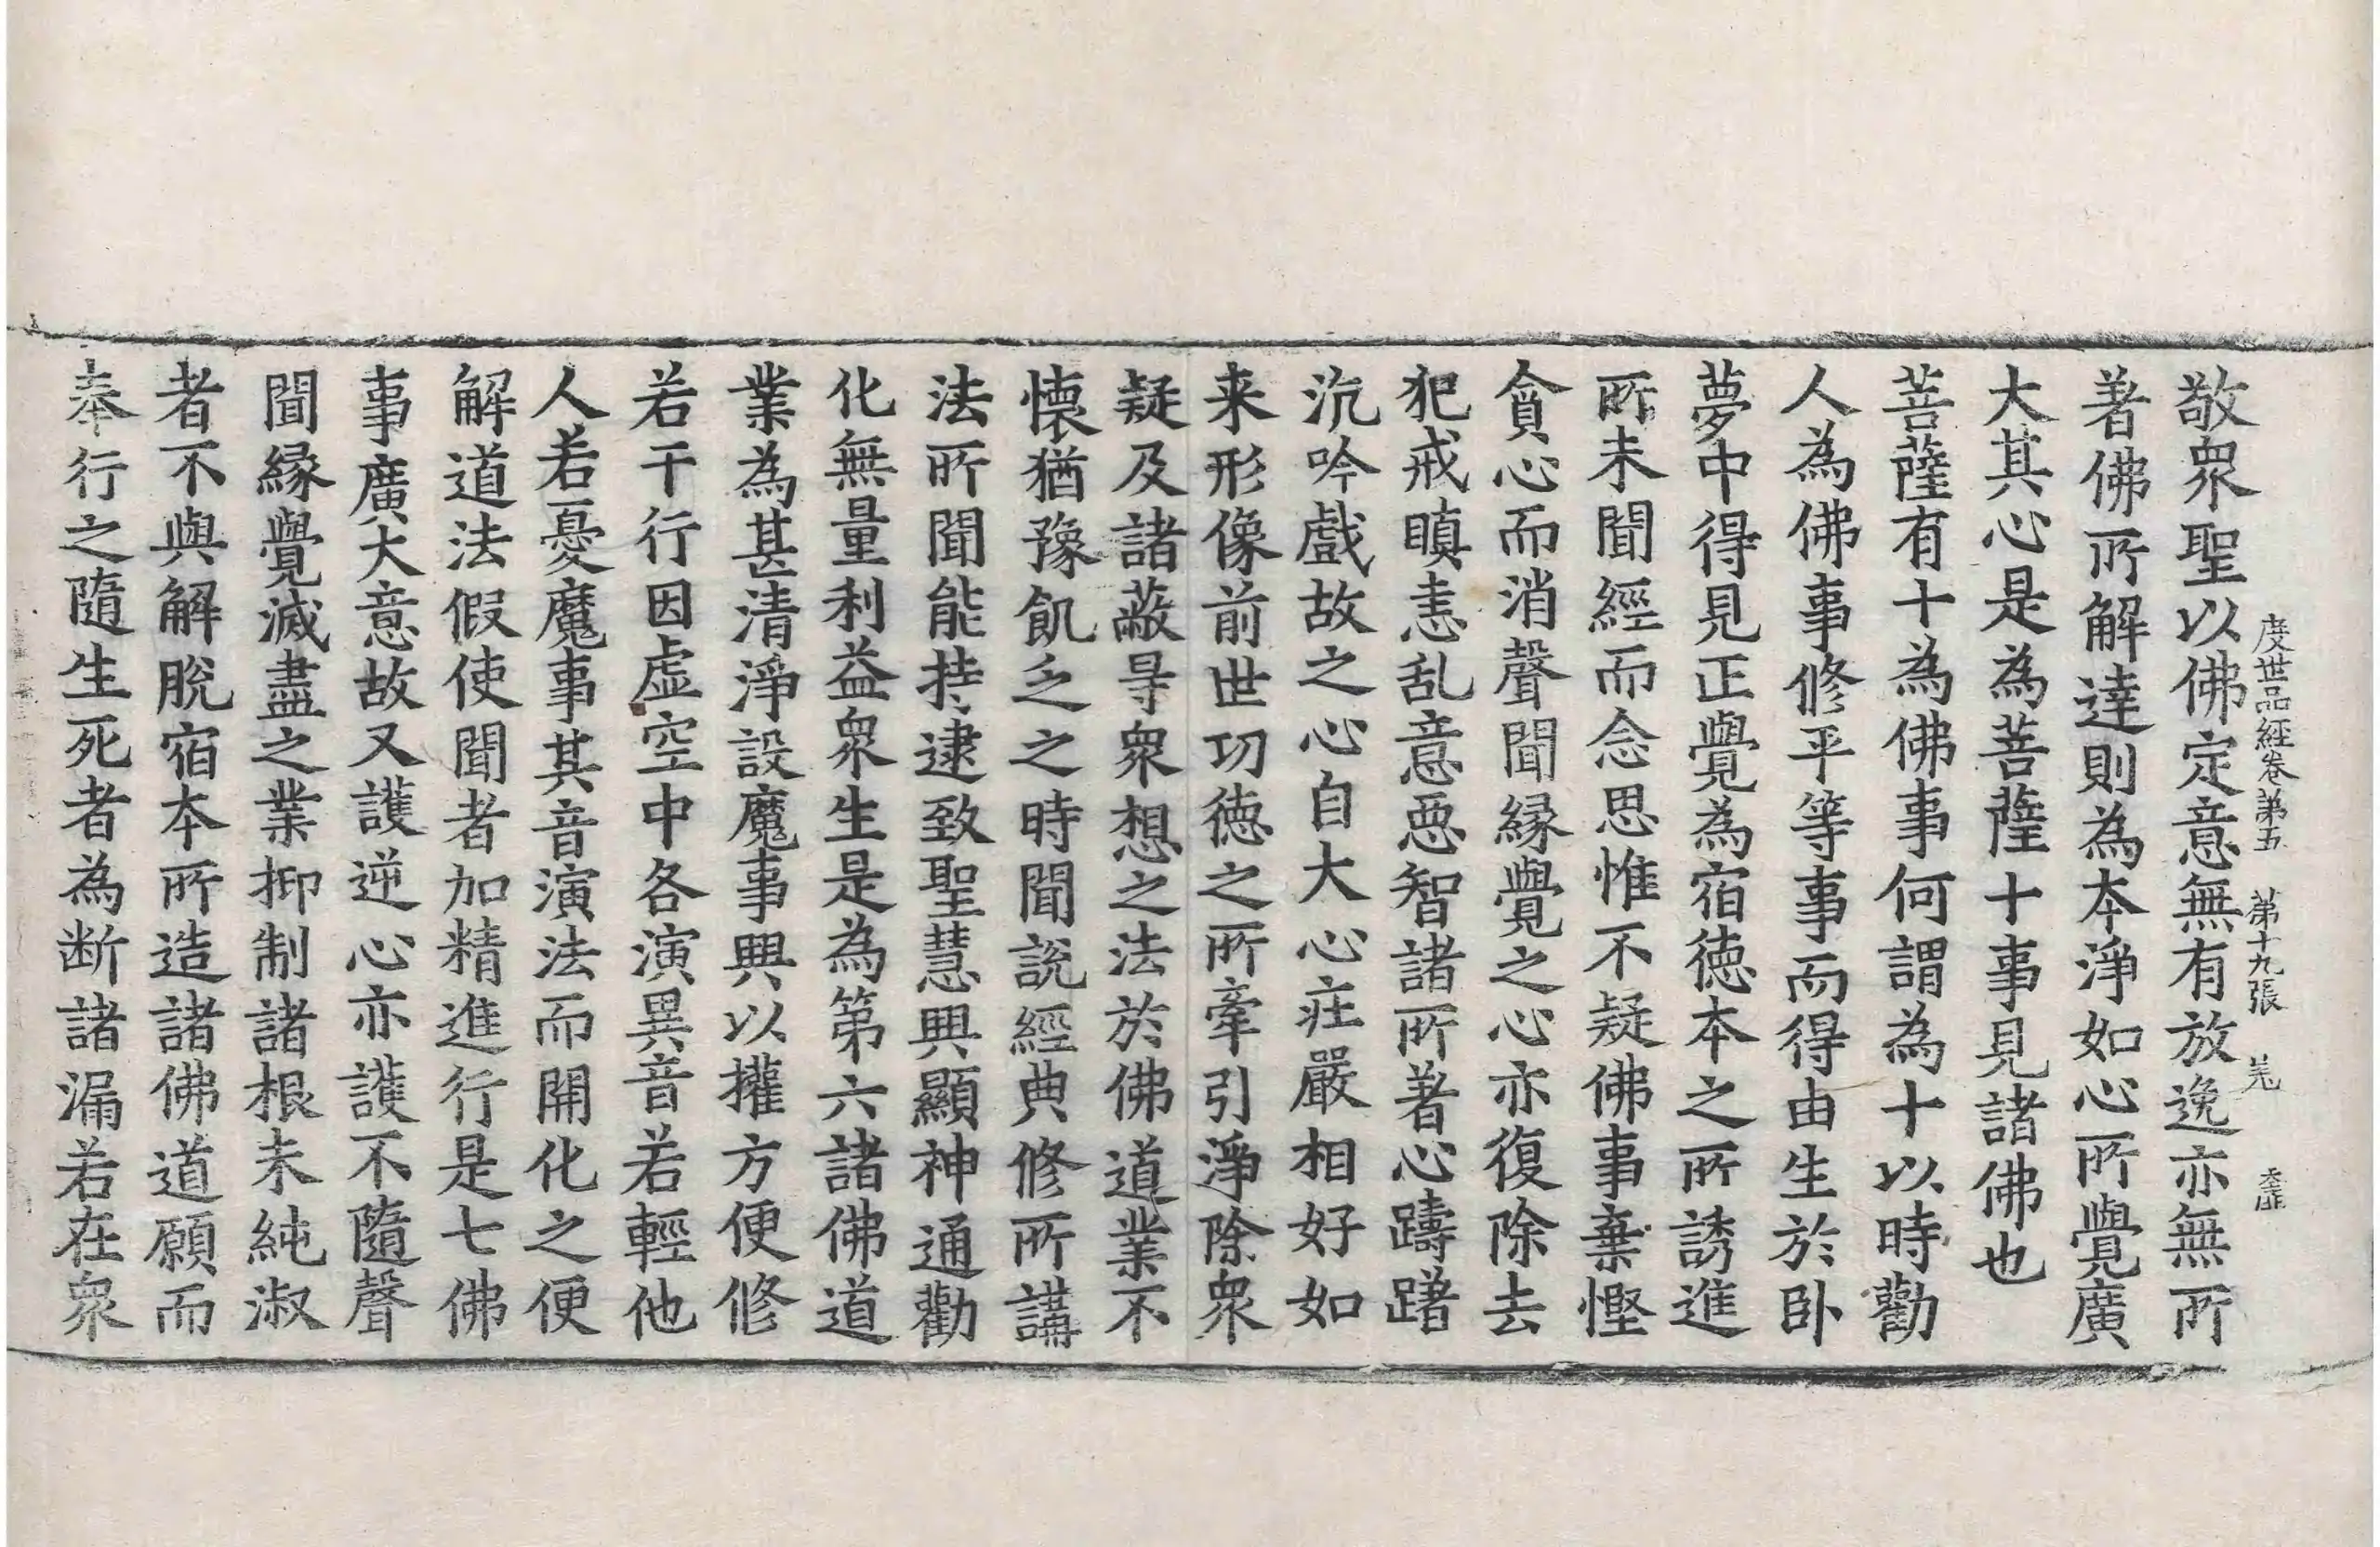 度世品經卷第五 第十九張 羌
敬衆聖以佛定意無有放逸亦無所
著佛所解達則為本淨如心所覺廣
大其心是為菩薩十事見諸佛也
菩薩有十為佛事何謂為十以時勸
人為佛事修平等事而得由生於卧
夢中得見正覺為宿徳本之所誘進
所未聞經而念思惟不疑佛事棄慳
貪心而消聲聞縁覺之心亦復除去
犯戒瞋恚乱意悪智諸所著心躊躇
沉吟戲故之心自大心莊嚴相好如
来形像前世功徳之所牽引淨除衆
疑及諸蔽㝵衆想之法於佛道業不
懐猶豫飢乏之時聞說經典修所講
法所聞能持逮致聖慧興顯神通勸
化無量利益衆生是為第六諸佛道
業為甚清淨設魔事興以權方便修
若干行因虛空中各演異音若輕他
人若憂魔事其音演法而開化之便
解道法假使聞者加精進行是七佛
事廣大意故又護逆心亦護不隨聲
聞縁覺滅盡之業抑制諸根未純淑
者不與解脫宿本所造諸佛道願而
奉行之隨生死者為断諸漏若在衆